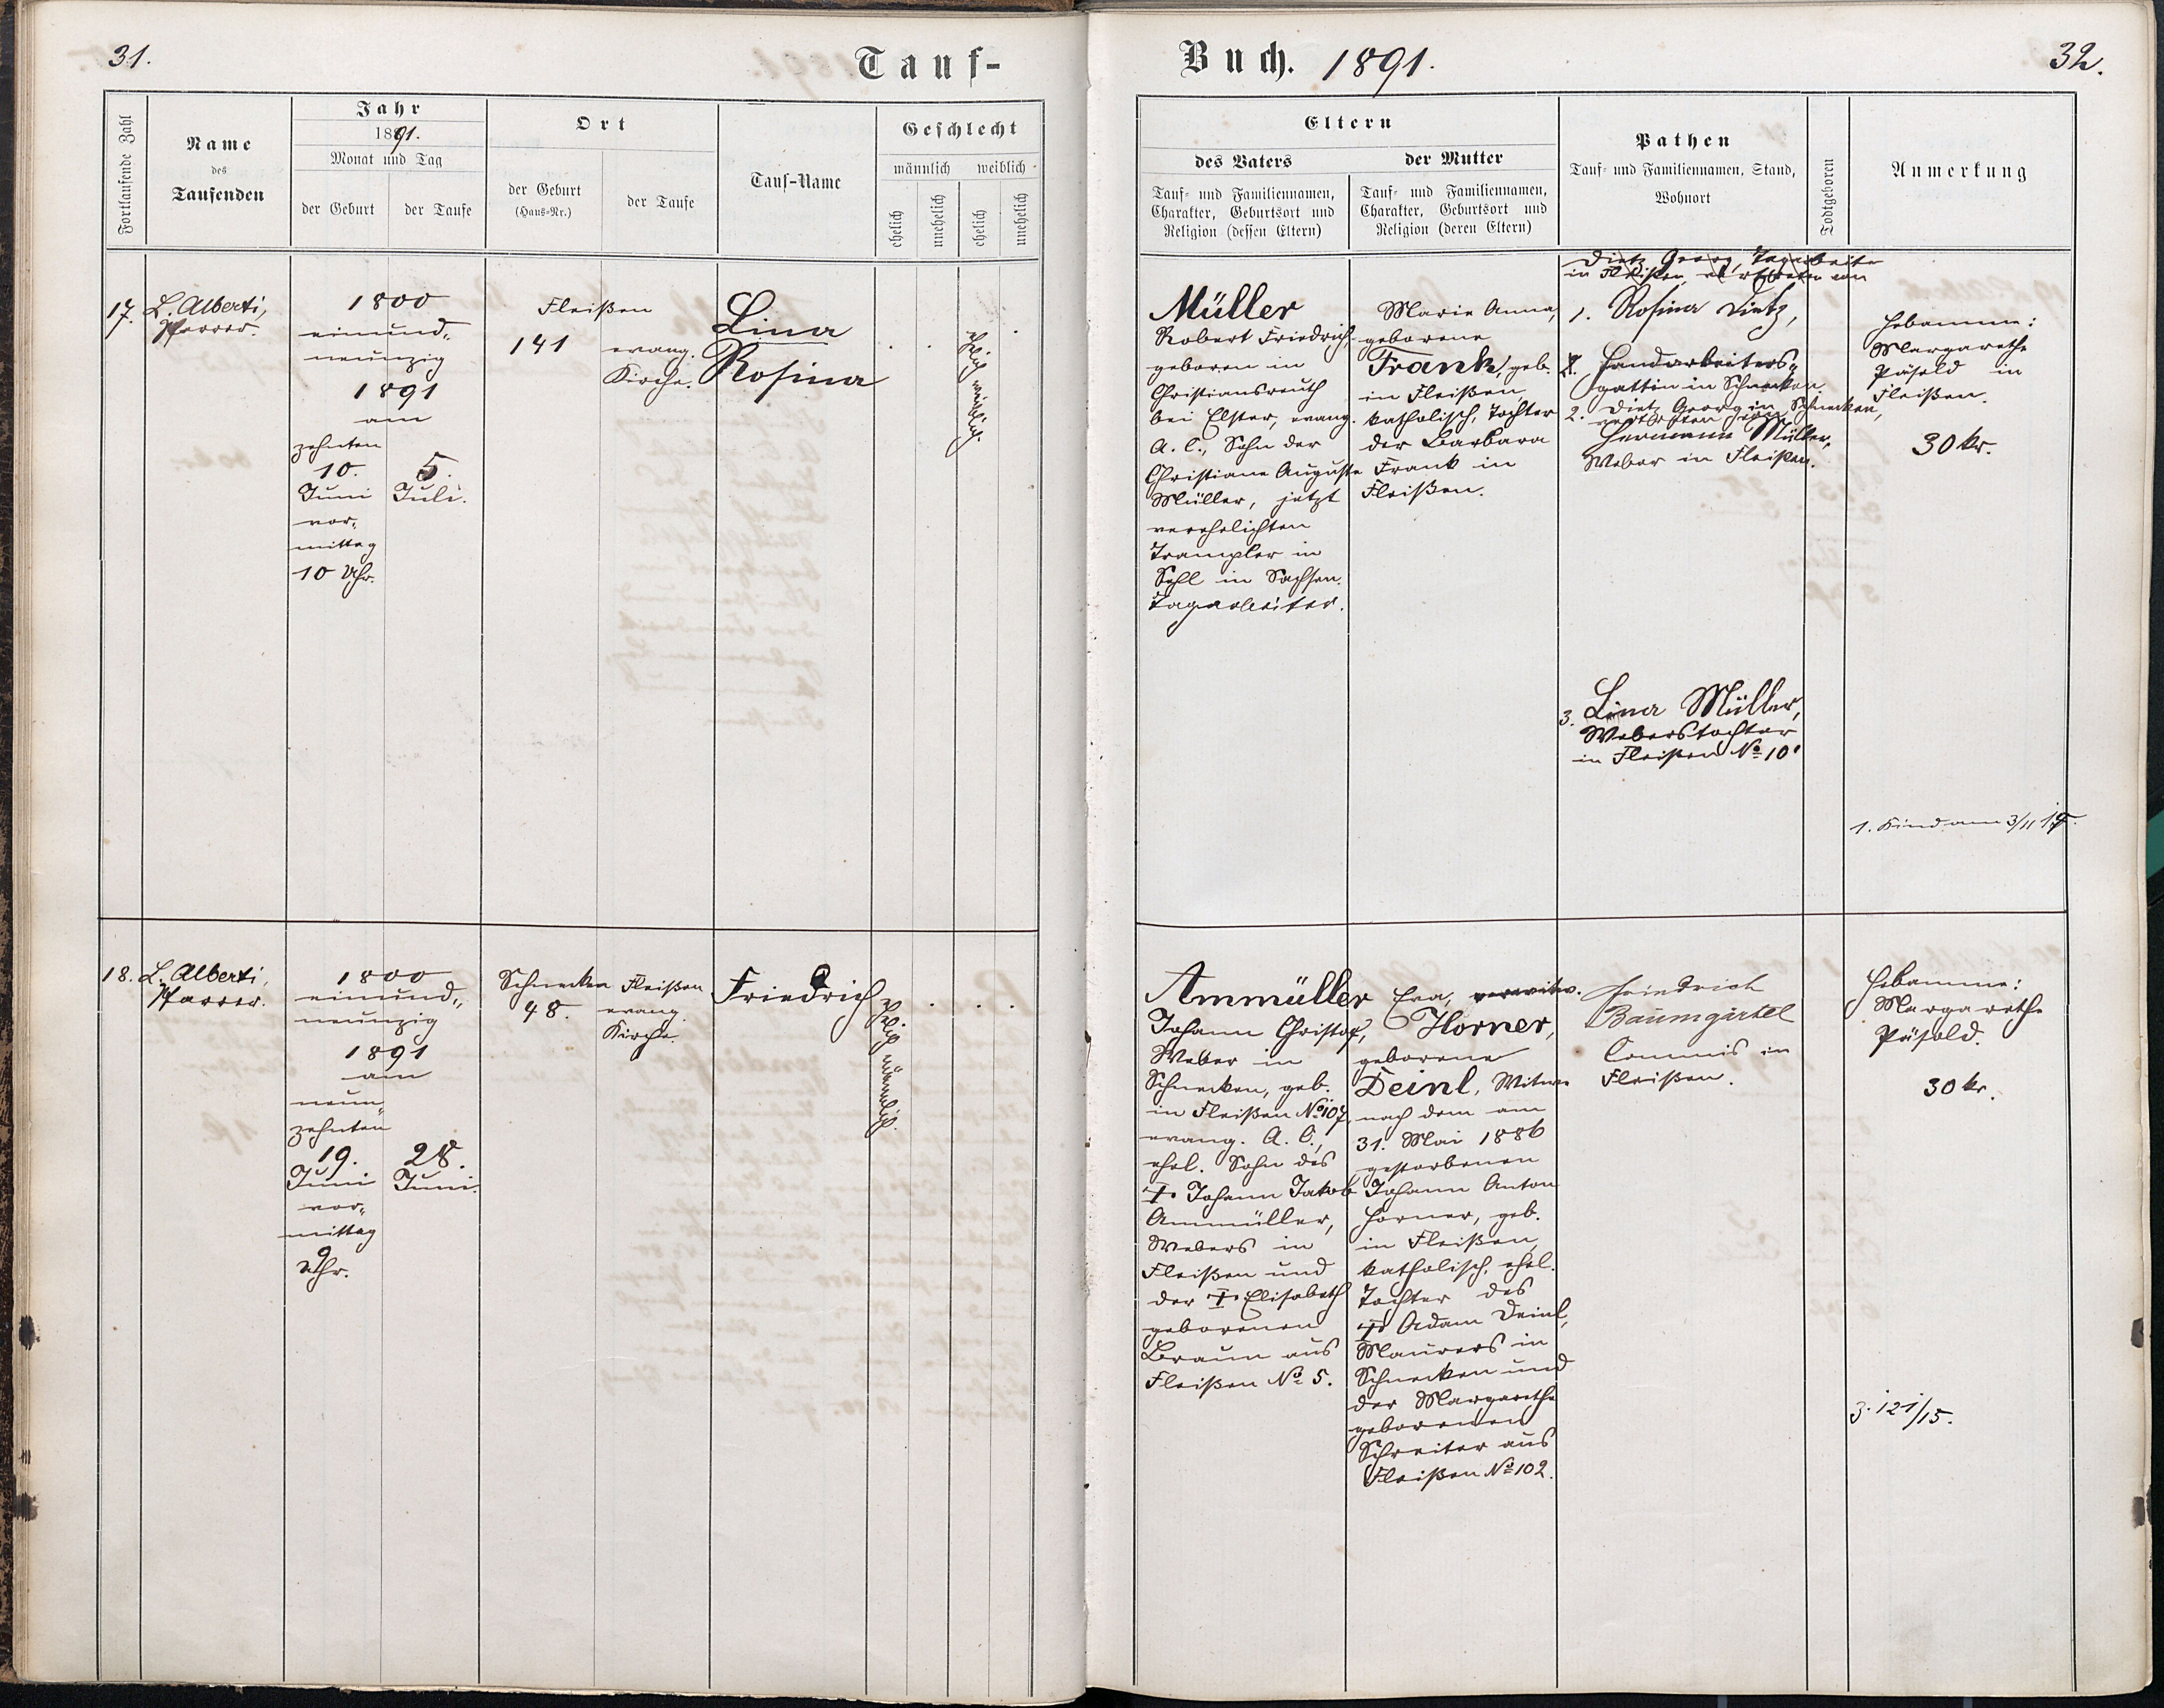 31.
Tauf-
Fortlaufende Zahl
Name
des
Taufenden
Jahr
1891.
Monat und Tag
der Geburt
der Taufe
Ort
der Geburt
(Haus-Nr.)
der Taufe
Tauf-Name
Geschlecht
männlich
weiblich
ehelich
unehelich
ehelich
unehelich
17.
L. Alberti,
Pfarrer.
1800
einund-
neunzig
1891
am
zehnten
10.
Juni
vor-
mittag
10 Uhr.
5.
Juli.
Fleißen
141
evang.
Kirche.
Lina
Rosina
Ehelich weiblich.
18.
L. Alberti,
Pfarrer.
1800
einund-
neunzig
1891
am
neun-
zehnten
19.
Juni
vor-
mittag
9
Uhr.
28.
Juni.
Schnecken
48.
Fleißen
evang.
Kirche.
Friedrich
Ehelich männlich.
Buch. 1891.
32.
Eltern
des Vaters
Tauf- und Familiennamen,
Charakter, Geburtsort und
Religion (dessen Eltern)
der Mutter
Tauf- und Familiennamen,
Charakter, Geburtsort und
Religion (deren Eltern)
Pathen
Tauf- und Familiennamen, Stand,
Wohnort
Todtgeboren
Anmerkung
Müller
Robert Friedrich,
geboren in
Christiansreuth
bei Elster, evang.
A. C., Sohn der
Christiane Auguste
Müller, jetzt
verehelichten
Trampler in
Sohl in Sachsen.
Tagarbeiter.
Marie Anna,
geborene
Frank, geb.
in Fleißen,
katholisch, Tochter
der Barbara
Frank in
Fleißen.
Dietz Georg, Tagarbeiter
in Fleißen, vertreten von
1. Rosina Dietz,
Handarbeiters-
gattin in Schnecken
2. Dietz Georg in Schnecken,
vertreten von
Hermann Müller,
Weber in Fleißen.
3. Lina Müller,
Weberstochter
in Fleißen No 10.
Hebamme:
Margarethe
Päsold in
Fleißen.
30 kr.
1. Kind am 3/11
Ammüller
Johann Christof,
Weber in
Schnecken, geb.
in Fleißen No 107,
evang. A. C.,
ehel. Sohn des
† Johann Jakob
Ammüller,
Webers in
Fleißen und
der † Elisabeth
geborenen
Braun aus
Fleißen No 5.
Eva, verwitw.
Horner,
geborene
Deinl, Witwe
nach dem am
31. Mai 1886
gestorbenen
Johann Anton
Horner, geb.
in Fleißen,
katholisch, ehel.
Tochter des
† Adam Deinl,
Maurers in
Schnecken und
der Margarethe
geborenen
Schreiter aus
Fleißen No 102.
Friedrich
Baumgärtel
Commis in
Fleißen.
Hebamme:
Margarethe
Päsold.
30 kr.
Z. 121/15.